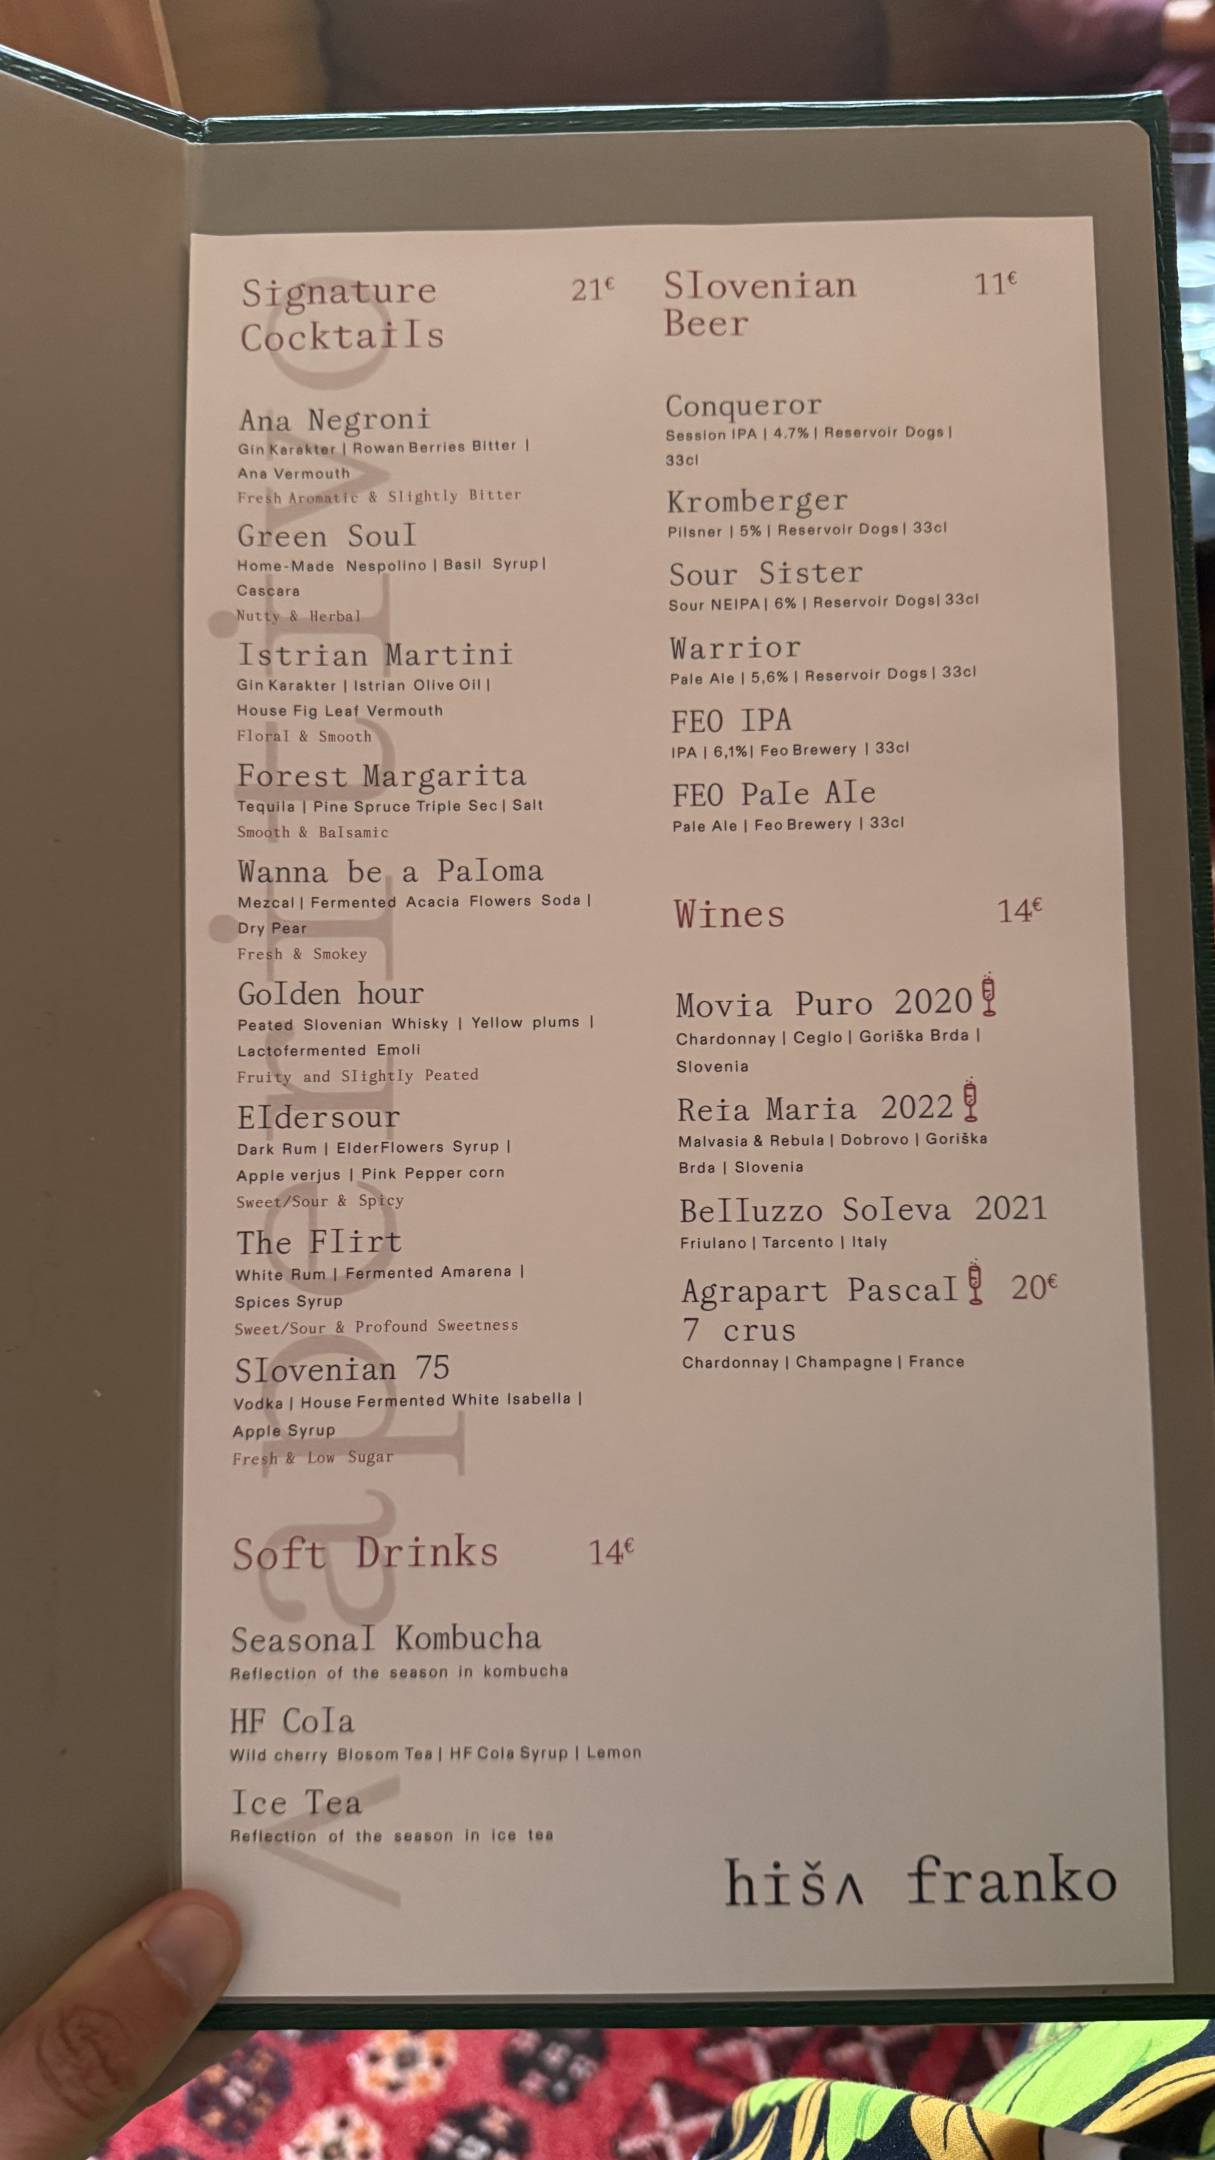 Signature 21€
Cocktails
Ana Negroni
Gin Karakter | Rowan Berries Bitter |
Ana Vermouth
Fresh Aromatic & Slightly Bitter
Green Soul
Home-Made Nespolino | Basil Syrup|
Cascara
Nutty & Herbal
Istrian Martini
Gin Karakter | Istrian Olive Oil |
House Fig Leaf Vermouth
Floral & Smooth
Forest Margarita
Tequila | Pine Spruce Triple Sec | Salt
Smooth & Balsamic
Wanna be a Paloma
Mezcal | Fermented Acacia Flowers Soda |
Dry Pear
Fresh & Smokey
Golden hour
Peated Slovenian Whisky | Yellow plums |
Lactofermented Emoli
Fruity and Slightly Peated
Eldersour
Dark Rum | ElderFlowers Syrup |
Apple verjus | Pink Pepper corn
Sweet/Sour & Spicy
The Flirt
White Rum | Fermented Amarena |
Spices Syrup
Sweet/Sour & Profound Sweetness
Slovenian 75
Vodka | House Fermented White Isabella |
Apple Syrup
Fresh & Low Sugar
Soft Drinks 14€
Seasonal Kombucha
Reflection of the season in kombucha
HF Cola
Wild cherry Blosom Tea | HF Cola Syrup | Lemon
Ice Tea
Reflection of the season in ice tea
Slovenian 11€
Beer
Conqueror
Session IPA | 4.7% | Reservoir Dogs |
33cl
Kromberger
Pilsner | 5% | Reservoir Dogs | 33cl
Sour Sister
Sour NEIPA | 6% | Reservoir Dogs| 33cl
Warrior
Pale Ale | 5,6% | Reservoir Dogs | 33cl
FEO IPA
IPA | 6,1%| Feo Brewery | 33cl
FEO Pale Ale
Pale Ale | Feo Brewery | 33cl
Wines 14€
Movia Puro 2020
Chardonnay | Ceglo | Goriška Brda |
Slovenia
Reia Maria 2022
Malvasia & Rebula | Dobrovo | Goriška
Brda | Slovenia
Belluzzo Soleva 2021
Friulano | Tarcento | Italy
Agrapart Pascal 20€
7 crus
Chardonnay | Champagne | France
hišʌ franko
ʌperitivo